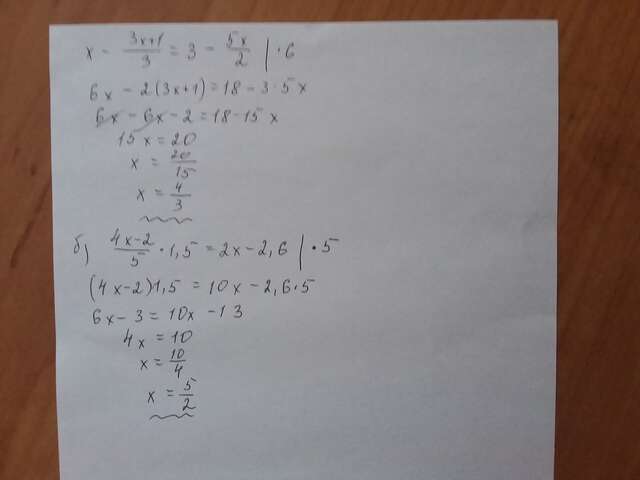 x - \frac{3x+1}{3} = 3 - \frac{5x}{2} | · 6
6x - 2(3x+1) = 18 - 3 · 5x
6x - 6x - 2 = 18 - 15x
15x = 20
x = \frac{20}{15}
x = \frac{4}{3}
б) \frac{4x-2}{5} · 1,5 = 2x - 2,6 | · 5
(4x-2)1,5 = 10x - 2,6·5
6x - 3 = 10x - 13
4x = 10
x = \frac{10}{4}
x = \frac{5}{2}